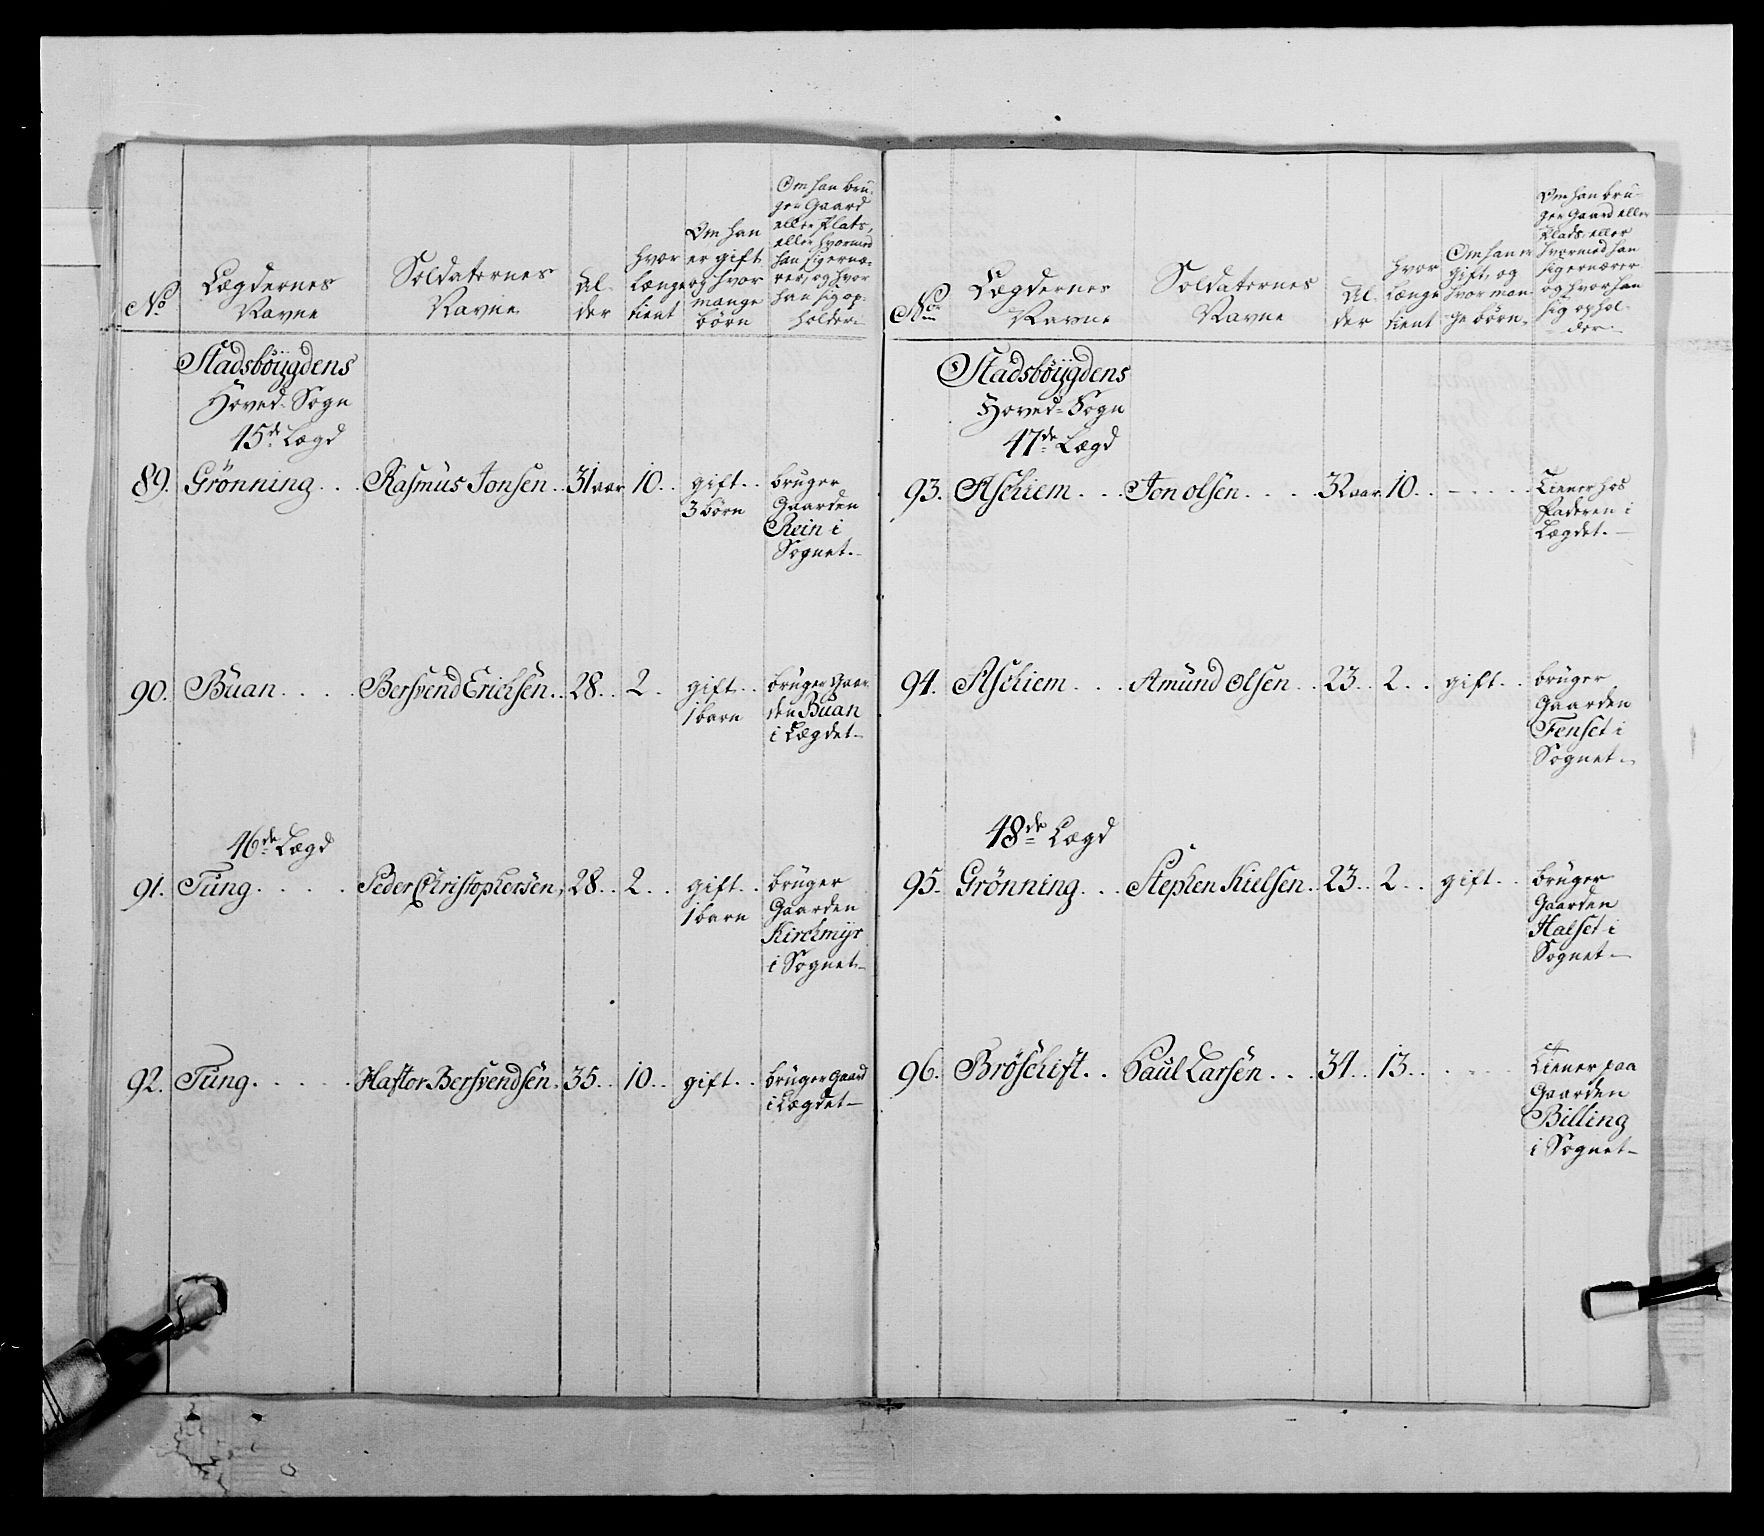 No
Lægdernes
Navne
Soldaternes
Navne
Al-
der
hvor
længe
tient
Om han
er gift
og hvor
mange
börn
Om han bru-
ger Gaard
eller Plats,
eller hvormed
han sig ernæ-
rer, og hvor
han sig op-
holder.
Stadsböygdens
Hoved-Sogn
45de Lægd
89. Grönning... Rasmus Jonsen.. 31 aar 10.. gift.. bruger
3 börn Gaarden
Rein i
Sognet.
90. Buan.... Bersvend Erichsen.. 28.. 2. gift.. bruger Gaar
1 barn den Buan
i Lægdet
46de Lægd
91. Tung..... Peder Christophersen, 28.. 2.. gift.. bruger
1 barn Gaarden
Kirckmyr
i Sognet
92. Tung..... Haftor Bersvendsen. 35.. 10.. gift.. bruger Gaard
i Lægdet
No
Lægdernes
Navne
Soldaternes
Navne
Al-
der
hvor
længe
tient
Om han er
gift, og
hvor man-
ge börn.
Om han bru-
ger Gaard eller
Plads, eller
hvormed han
sig ernærer
og hvor han
sig ophol-
der.
Stadsböygdens
Hoved-Sogn
47de Lægd
93. Aschiem... Jon Olsen.... 32 aar 10.. Tiener hos
Faderen i
Lægdet.
94. Aschiem... Amund Olsen.. 23.. 2.. gift.. bruger
Gaarden
Fenset i
Sognet
48de Lægd
95. Grönning... Stephen Nielsen.. 23.. 2.. gift.. bruger
Gaarden
Halset i
Sognet
96. Bröschift.. Paul Larsen... 34.. 13.. Tiener paa
Gaarden
Billing
i Sognet